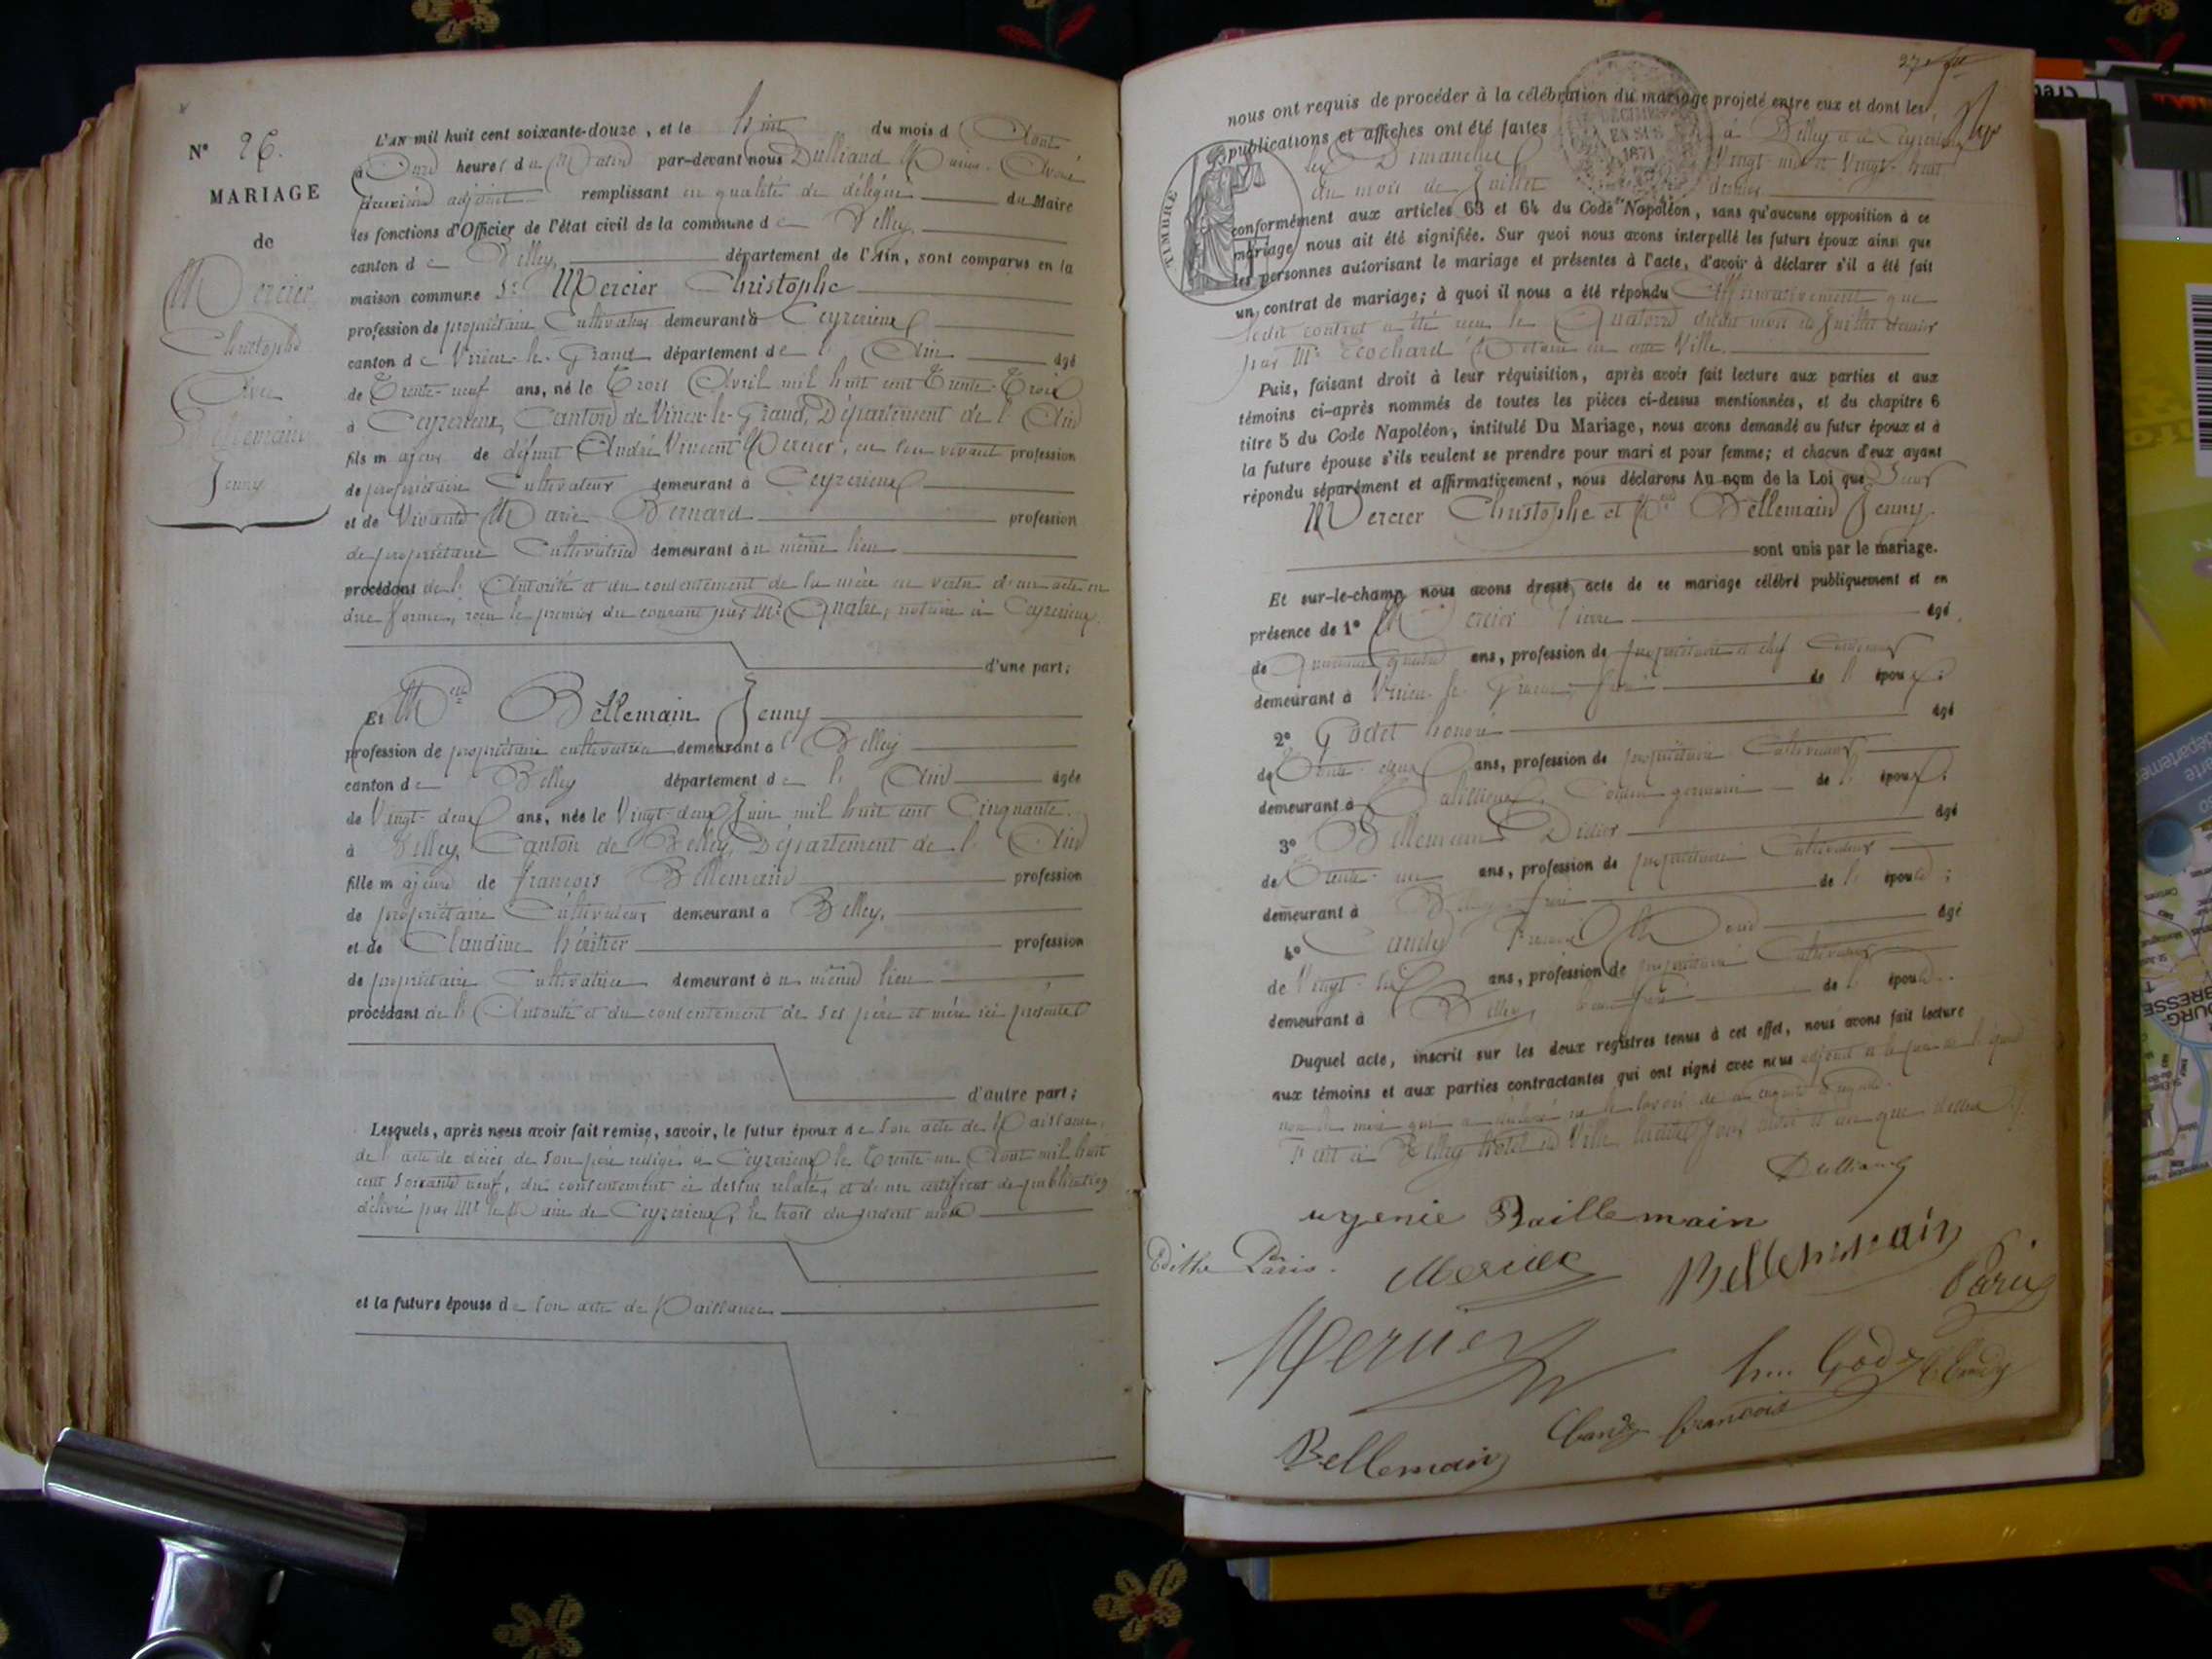 N° 26.
MARIAGE
de
Mercier
Christophe
Avec
Bellemain
Jenny
L'AN mil huit cent soixante-douze, et le huit du mois d'Août
à Onze heures du Matin par-devant nous Dulliand Avoué
deuxième adjoint remplissant en qualité de délégué du Maire
les fonctions d'Officier de l'état civil de la commune de Belley,
canton de Belley, département de l'Ain, sont comparus en la
maison commune Sr Mercier Christophe
profession de propriétaire Cultivateur demeurant à Ceyzerieux
canton de Virieu-le-Grand département de l'Ain âgé
de Trente-neuf ans, né le Trois Avril mil huit cent Trente-Trois
à Ceyzerieux, Canton de Virieu-le-Grand, Département de l'Ain
fils majeur de défunt André Vincent Mercier, en son vivant profession
de propriétaire Cultivateur demeurant à Ceyzerieux
et de Vivante Marie Bernard profession
de propriétaire Cultivatrice demeurant au même lieu
procédant de l'Autorité et du consentement de la mère en vertu d'un acte en
due forme, reçu le premier du courant par Me Quatre, notaire à Ceyzerieux.
d'une part;
Et Melle Bellemain Jenny
profession de propriétaire cultivatrice demeurant à Belley
canton de Belley département de l'Ain âgée
de Vingt-deux ans, née le Vingt-deux Juin mil huit cent Cinquante.
à Belley, Canton de Belley, Département de l'Ain
fille majeure de françois Bellemain profession
de propriétaire Cultivateur demeurant à Belley,
et de Claudine héritier profession
de propriétaire Cultivatrice demeurant au même lieu
procédant de l'Autorité et du consentement de ses père et mère ici présents
d'autre part;
Lesquels, après nous avoir fait remise, savoir, le futur époux de son acte de Naissance,
de l'acte de décès de son père rédigé à Ceyzerieux le Trente-un Août mil huit
cent soixante neuf, du consentement ci dessus relaté, et d'un certificat de publication
délivré par Mr le Maire de Ceyzerieux, le trois du présent mois
et la future épouse de son acte de Naissance
27
nous ont requis de procéder à la célébration du mariage projeté entre eux et dont les
publications et affiches ont été faites à Belley et à Ceyzerieux
les Dimanches Vingt-un et Vingt-huit
du mois de Juillet dernier
1871
TIMBRE
conformément aux articles 63 et 64 du Code Napoléon, sans qu'aucune opposition à ce
mariage nous ait été signifiée. Sur quoi nous avons interpellé les futurs époux ainsi que
les personnes autorisant le mariage et présentes à l'acte, d'avoir à déclarer s'il a été fait
un contrat de mariage; à quoi il nous a été répondu Affirmativement que
ledit contrat a été reçu le Quatorze dudit mois de Juillet dernier
par Me Ecochard Notaire en cette Ville.
Puis, faisant droit à leur réquisition, après avoir fait lecture aux parties et aux
témoins ci-après nommés de toutes les pièces ci-dessus mentionnées, et du chapitre 6
titre 5 du Code Napoléon, intitulé Du Mariage, nous avons demandé au futur époux et à
la future épouse s'ils veulent se prendre pour mari et pour femme; et chacun d'eux ayant
répondu séparément et affirmativement, nous déclarons Au nom de la Loi que Sieur
Mercier Christophe et Melle Bellemain Jenny.
sont unis par le mariage.
Et sur-le-champ nous avons dressé acte de ce mariage célébré publiquement et en
présence de 1° Mercier Pierre âgé
de Quarante quatre ans, profession de propriétaire et chef
demeurant à Virieu-le-Grand, frère de l'époux;
2° Godet honoré âgé
de Trente-deux ans, profession de propriétaire Cultivateur
demeurant à Cousin germain de l'époux;
3° Bellemain Didier âgé
de Trente-un ans, profession de propriétaire Cultivateur
demeurant à Belley frère de l'épouse;
4° Candy âgé
de Vingt-six ans, profession de propriétaire Cultivateur
demeurant à Belley, beau-frère de l'épouse.
Duquel acte, inscrit sur les deux registres tenus à cet effet, nous avons fait lecture
aux témoins et aux parties contractantes qui ont signé avec nous adjoint
non la mère qui a déclaré ne le savoir de ce enquise et requise.
Fait à Belley hôtel de Ville lesdits jour, mois et an que dessus
Dulliand
ugenie Baillemain
Edithe Paris.
Mercier
Bellemain
Paris
Mercier
h... Godet
Candy
Candy francois
Bellemain